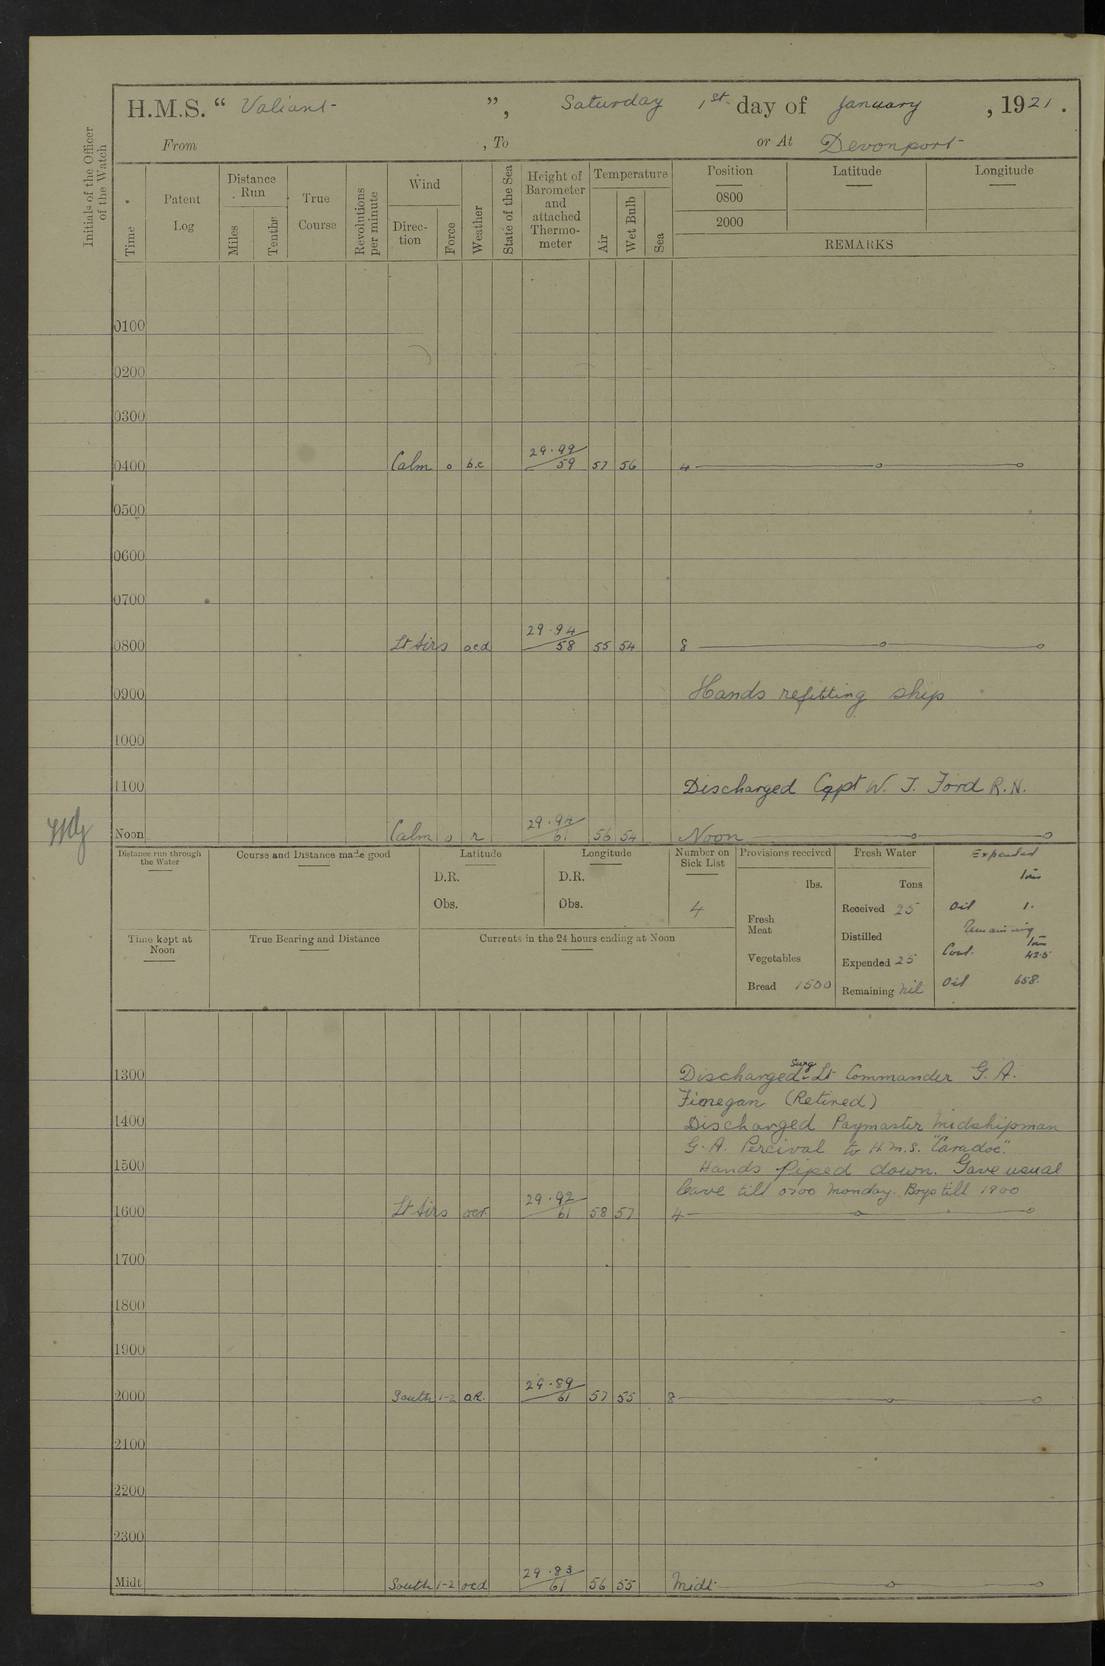 H.M.S. “ Valiant ”, Saturday 1st day of January , 1921.
From , To or At Devonport
Initials of the Officer of the Watch
Time
Patent Log
Distance Run
Miles
Tenths
True Course
Revolutions per minute
Wind
Direction
Force
Weather
State of the Sea
Height of Barometer and attached Thermometer
Temperature
Air
Wet Bulb
Sea
Position Latitude Longitude
0800
2000
REMARKS
0100
0200
0300
0400 Calm 0 b.c 29.99/59 57 56 4
0500
0600
0700
0800 Lt Airs ocd 29.94/58 55 54 8
0900 Hands refitting ship
1000
1100 Discharged Capt W. J. Ford R.N.
Noon Calm 0 r 29.94/61 56 54 Noon
Distance run through the Water
Course and Distance made good
Latitude
D.R.
Obs.
Longitude
D.R.
Obs.
Number on Sick List
4
Provisions received
lbs.
Fresh Meat
Vegetables
Bread 1500
Fresh Water
Tons
Received 25
Distilled
Expended 25
Remaining nil
Expended
Tons
Oil 1.
Remaining
Tons
Coal. 425
Oil 658.
Time kept at Noon
True Bearing and Distance
Currents in the 24 hours ending at Noon
1300 Discharged Surg Lt Commander G. A.
Finegan (Retired)
1400 Discharged Paymaster Midshipman
G. A. Percival to H.M.S. "Caradoc".
1500 Hands piped down. Gave usual
leave till 0700 Monday. Boys till 1900
1600 Lt Airs ocr 29.92/61 58 57 4
1700
1800
1900
2000 South 1-2 OR. 29.89/61 57 55 8
2100
2200
2300
Midt South 1-2 ocd 29.83/61 56 55 Midt